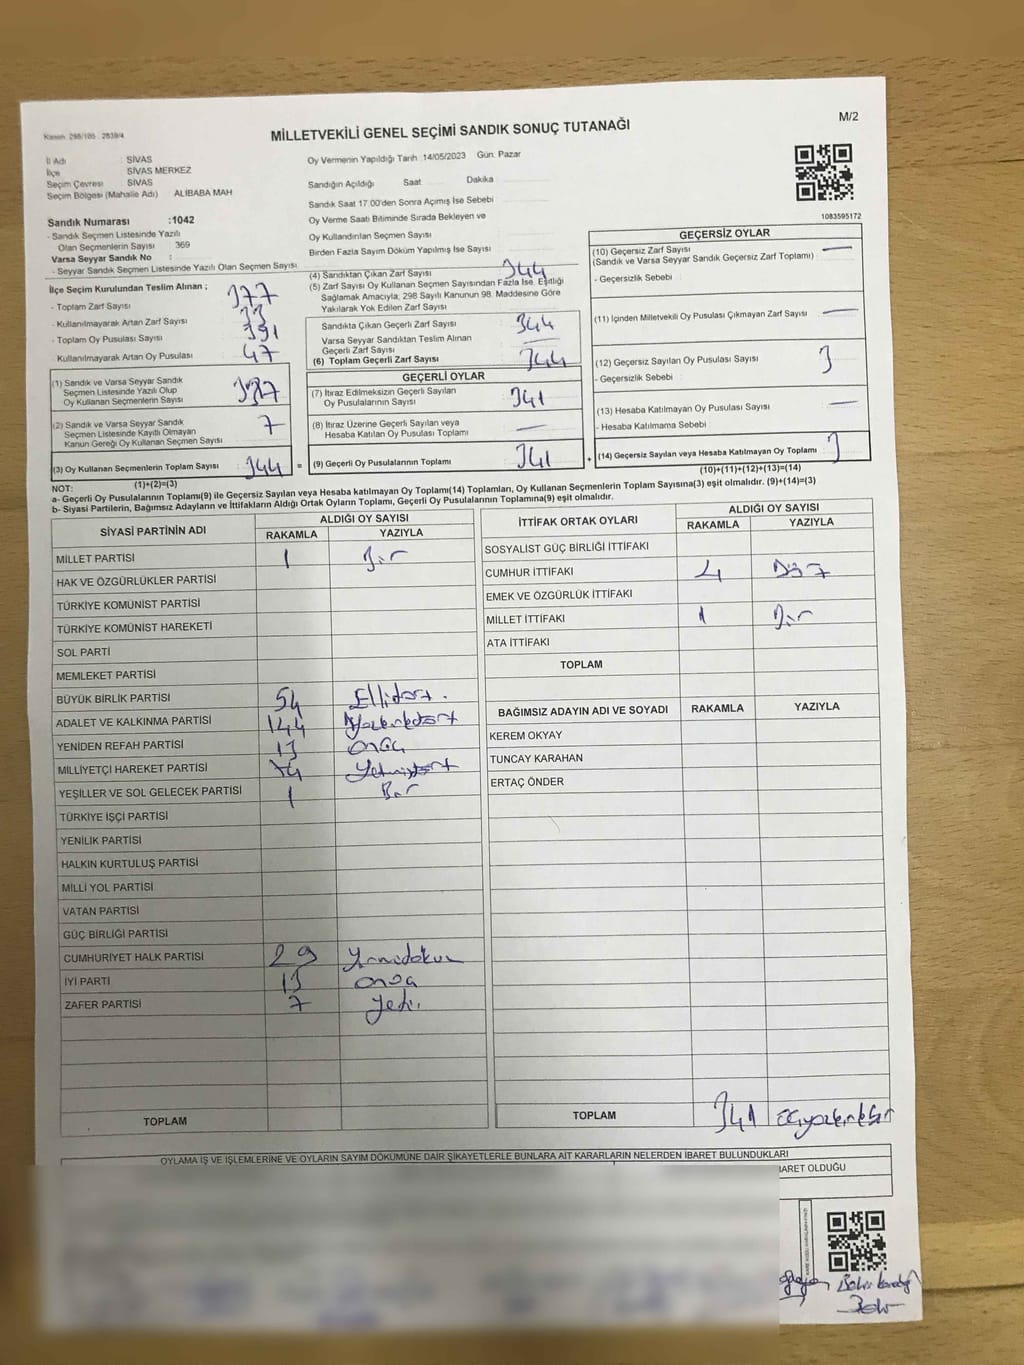 Kanun: 298/105 : 2839/4
M/2
MİLLETVEKİLİ GENEL SEÇİMİ SANDIK SONUÇ TUTANAĞI
İl Adı : SİVAS
İlçe : SİVAS MERKEZ
Seçim Çevresi : SİVAS
Seçim Bölgesi (Mahalle Adı) ALİBABA MAH
Sandık Numarası :1042
- Sandık Seçmen Listesinde Yazılı
Olan Seçmenlerin Sayısı : 369
Varsa Seyyar Sandık No :
- Seyyar Sandık Seçmen Listesinde Yazılı Olan Seçmen Sayısı
Oy Vermenin Yapıldığı Tarih :14/05/2023 Gün: Pazar
Sandığın Açıldığı Saat Dakika
Sandık Saat 17.00'den Sonra Açımış İse Sebebi
Oy Verme Saati Bitiminde Sırada Bekleyen ve
Oy Kullandırılan Seçmen Sayısı
Birden Fazla Sayım Döküm Yapılmış İse Sayısı
1083595172
İlçe Seçim Kurulundan Teslim Alınan ;
- Toplam Zarf Sayısı 377
- Kullanılmayarak Artan Zarf Sayısı 33
- Toplam Oy Pusulası Sayısı 391
- Kullanılmayarak Artan Oy Pusulası 47
(1) Sandık ve Varsa Seyyar Sandık
Seçmen Listesinde Yazılı Olup
Oy Kullanan Seçmenlerin Sayısı
(2) Sandık ve Varsa Seyyar Sandık
Seçmen Listesinde Kayıtlı Olmayan
Kanun Gereği Oy Kullanan Seçmen Sayısı 7
(3) Oy Kullanan Seçmenlerin Toplam Sayısı 344 =
(1)+(2)=(3)
(4) Sandıktan Çıkan Zarf Sayısı 344
(5) Zarf Sayısı Oy Kullanan Seçmen Sayısından Fazla İse, Eşitliği
Sağlamak Amacıyla, 298 Sayılı Kanunun 98. Maddesine Göre
Yakılarak Yok Edilen Zarf Sayısı
Sandıkta Çıkan Geçerli Zarf Sayısı 344
Varsa Seyyar Sandıktan Teslim Alınan
Geçerli Zarf Sayısı —
(6) Toplam Geçerli Zarf Sayısı 344
GEÇERLİ OYLAR
(7) İtiraz Edilmeksizin Geçerli Sayılan
Oy Pusulalarının Sayısı 341
(8) İtiraz Üzerine Geçerli Sayılan veya
Hesaba Katılan Oy Pusulası Toplamı —
(9) Geçerli Oy Pusulalarının Toplamı 341 +
GEÇERSİZ OYLAR
(10) Geçersiz Zarf Sayısı —
(Sandık ve Varsa Seyyar Sandık Geçersiz Zarf Toplamı)
- Geçersizlik Sebebi :
(11) İçinden Milletvekili Oy Pusulası Çıkmayan Zarf Sayısı —
(12) Geçersiz Sayılan Oy Pusulası Sayısı 3
- Geçersizlik Sebebi :
(13) Hesaba Katılmayan Oy Pusulası Sayısı —
- Hesaba Katılmama Sebebi :
(14) Geçersiz Sayılan veya Hesaba Katılmayan Oy Toplamı 3
(10)+(11)+(12)+(13)=(14)
NOT:
a- Geçerli Oy Pusulalarının Toplamı(9) ile Geçersiz Sayılan veya Hesaba katılmayan Oy Toplamı(14) Toplamları, Oy Kullanan Seçmenlerin Toplam Sayısına(3) eşit olmalıdır. (9)+(14)=(3)
b- Siyasi Partilerin, Bağımsız Adayların ve İttifakların Aldığı Ortak Oyların Toplamı, Geçerli Oy Pusulalarının Toplamına(9) eşit olmalıdır.
SİYASİ PARTİNİN ADI ALDIĞI OY SAYISI
RAKAMLA YAZIYLA
MİLLET PARTİSİ 1 Bir
HAK VE ÖZGÜRLÜKLER PARTİSİ
TÜRKİYE KOMÜNİST PARTİSİ
TÜRKİYE KOMÜNİST HAREKETİ
SOL PARTİ
MEMLEKET PARTİSİ
BÜYÜK BİRLİK PARTİSİ 54 Ellidört.
ADALET VE KALKINMA PARTİSİ 144 Yüzkırkdört
YENİDEN REFAH PARTİSİ 13 onüç
MİLLİYETÇİ HAREKET PARTİSİ 74 Yetmişdört
YEŞİLLER VE SOL GELECEK PARTİSİ 1 Bir
TÜRKİYE İŞÇİ PARTİSİ
YENİLİK PARTİSİ
HALKIN KURTULUŞ PARTİSİ
MİLLİ YOL PARTİSİ
VATAN PARTİSİ
GÜÇ BİRLİĞİ PARTİSİ
CUMHURİYET HALK PARTİSİ 29 Yirmidokuz
İYİ PARTİ 13 onüç
ZAFER PARTİSİ 7 yedi.
TOPLAM
İTTİFAK ORTAK OYLARI ALDIĞI OY SAYISI
RAKAMLA YAZIYLA
SOSYALİST GÜÇ BİRLİĞİ İTTİFAKI
CUMHUR İTTİFAKI 4 Dört
EMEK VE ÖZGÜRLÜK İTTİFAKI
MİLLET İTTİFAKI 1 Bir
ATA İTTİFAKI
TOPLAM
BAĞIMSIZ ADAYIN ADI VE SOYADI RAKAMLA YAZIYLA
KEREM OKYAY
TUNCAY KARAHAN
ERTAÇ ÖNDER
TOPLAM 341 üçyüzkırkbir
OYLAMA İŞ VE İŞLEMLERİNE VE OYLARIN SAYIM DÖKÜMÜNE DAİR ŞİKAYETLERLE BUNLARA AİT KARARLARIN NELERDEN İBARET BULUNDUKLARI
BARET OLDUĞU